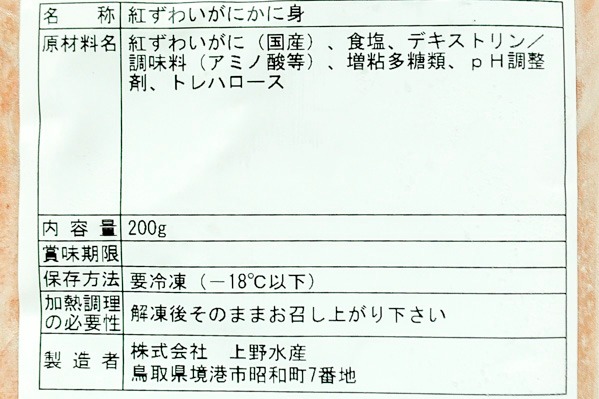 名称 紅ずわいがにかに身
原材料名 紅ずわいがに（国産）、食塩、デキストリン／
調味料（アミノ酸等）、増粘多糖類、ｐＨ調整
剤、トレハロース
内容量 200g
賞味期限
保存方法 要冷凍（－18℃以下）
加熱調理
の必要性 解凍後そのままお召し上がり下さい
製造者 株式会社　上野水産
鳥取県境港市昭和町7番地